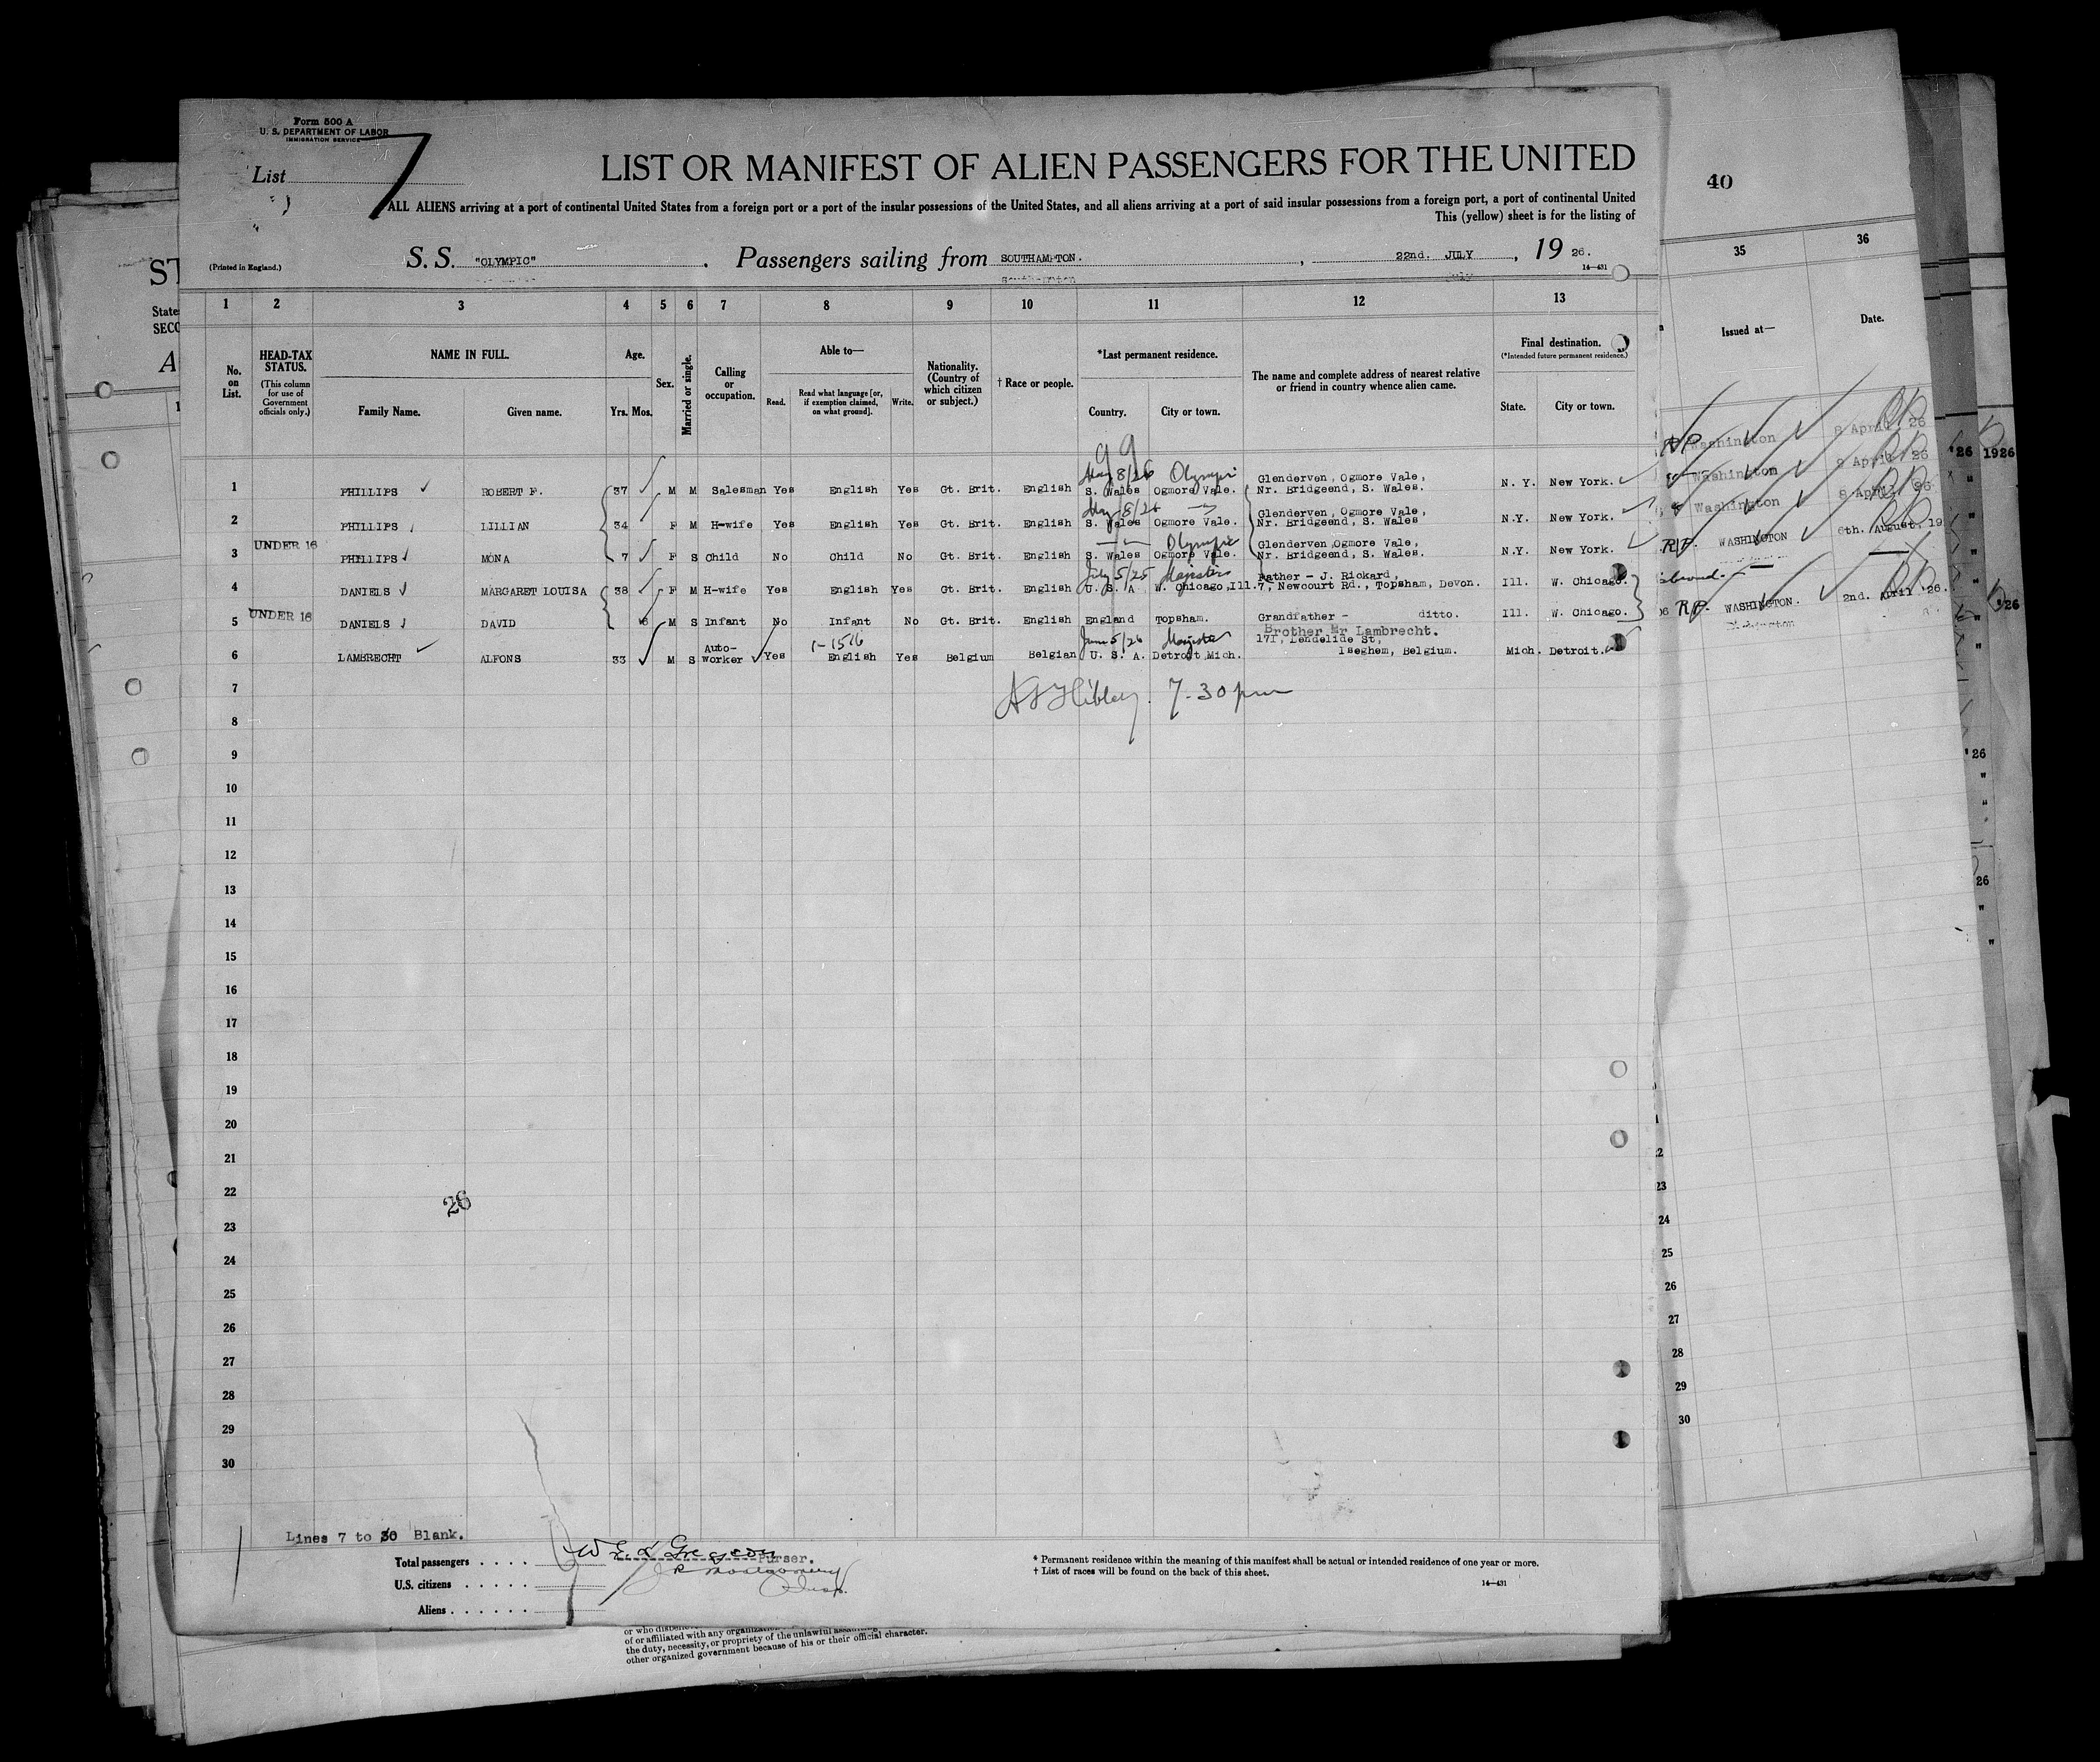 Form 500 A
U. S. DEPARTMENT OF LABOR
IMMIGRATION SERVICE
List 7
LIST OR MANIFEST OF ALIEN PASSENGERS FOR THE UNITED
ALL ALIENS arriving at a port of continental United States from a foreign port or a port of the insular possessions of the United States, and all aliens arriving at a port of said insular possessions from a foreign port, a port of continental United
This (yellow) sheet is for the listing of
(Printed in England.)
S. S. "OLYMPIC" . Passengers sailing from SOUTHAMPTON. , 22nd. JULY , 19 26.
14—431
1 2 3 4 5 6 7 8 9 10 11 12 13
No. on List.
HEAD-TAX STATUS.
(This column for use of Government officials only.)
NAME IN FULL.
Family Name. Given name.
Age.
Yrs. Mos.
Sex.
Married or single.
Calling or occupation.
Able to—
Read. Read what language [or, if exemption claimed, on what ground]. Write.
Nationality. (Country of which citizen or subject.)
† Race or people.
*Last permanent residence.
Country. City or town.
The name and complete address of nearest relative or friend in country whence alien came.
Final destination.
(*Intended future permanent residence.)
State. City or town.
99
May 8/26 Olympic
1 PHILLIPS ROBERT F. 37 M M Salesman Yes English Yes Gt. Brit. English S. Wales Ogmore Vale. Glenderven, Ogmore Vale, Nr. Bridgeend, S. Wales. N. Y. New York.
May 8/26
2 PHILLIPS LILLIAN 34 F M H-wife Yes English Yes Gt. Brit. English S. Wales Ogmore Vale. Glenderven, Ogmore Vale, Nr. Bridgeend, S. Wales N.Y. New York.
Olympic
3 UNDER 16 PHILLIPS MONA 7 F S Child No Child No Gt. Brit. English S. Wales Ogmore Vale. Glenderven Ogmore Vale, Nr. Bridgeend, S. Wales. N.Y. New York.
July 5/25 Majestic
4 DANIELS MARGARET LOUISA 38 F M H-wife Yes English Yes Gt. Brit. English U. S. A W. Chicago, Ill. Father - J. Rickard, 7, Newcourt Rd., Topsham, Devon. Ill. W. Chicago.
5 UNDER 16 DANIELS DAVID 6 M S Infant No Infant No Gt. Brit. English England Topsham. Grandfather - ditto. Ill. W. Chicago.
June 5/26 Majestic
6 LAMBRECHT ALFONS 33 M S Auto-worker Yes English Yes Belgium Belgian U. S. A. Detroit Mich. Brother Mr Lambrecht. 171, Lendelide St, Iseghem, Belgium. Mich. Detroit.
7 7-30 pm
8
9
10
11
12
13
14
15
16
17
18
19
20
21
22
26
23
24
25
26
27
28
29
30
Lines 7 to 30 Blank.
Total passengers . . . .
U.S. citizens . . . . . .
Aliens . . . . . . .
Purser.
* Permanent residence within the meaning of this manifest shall be actual or intended residence of one year or more.
† List of races will be found on the back of this sheet.
14—431
of or affiliated with any organization
the duty, necessity, or propriety of the unlawful
other organized government because of his or their official character.
40
35 36
Issued at— Date.
Washington 8 April 26
Washington 8 April 26
Washington 8 April 26
R.P. WASHINGTON 6th. August, 19
R.P. WASHINGTON. 2nd. April '26.
23
24
25
26
27
28
29
30
26 1926
'26
'26
26
ST
State
SECO
A